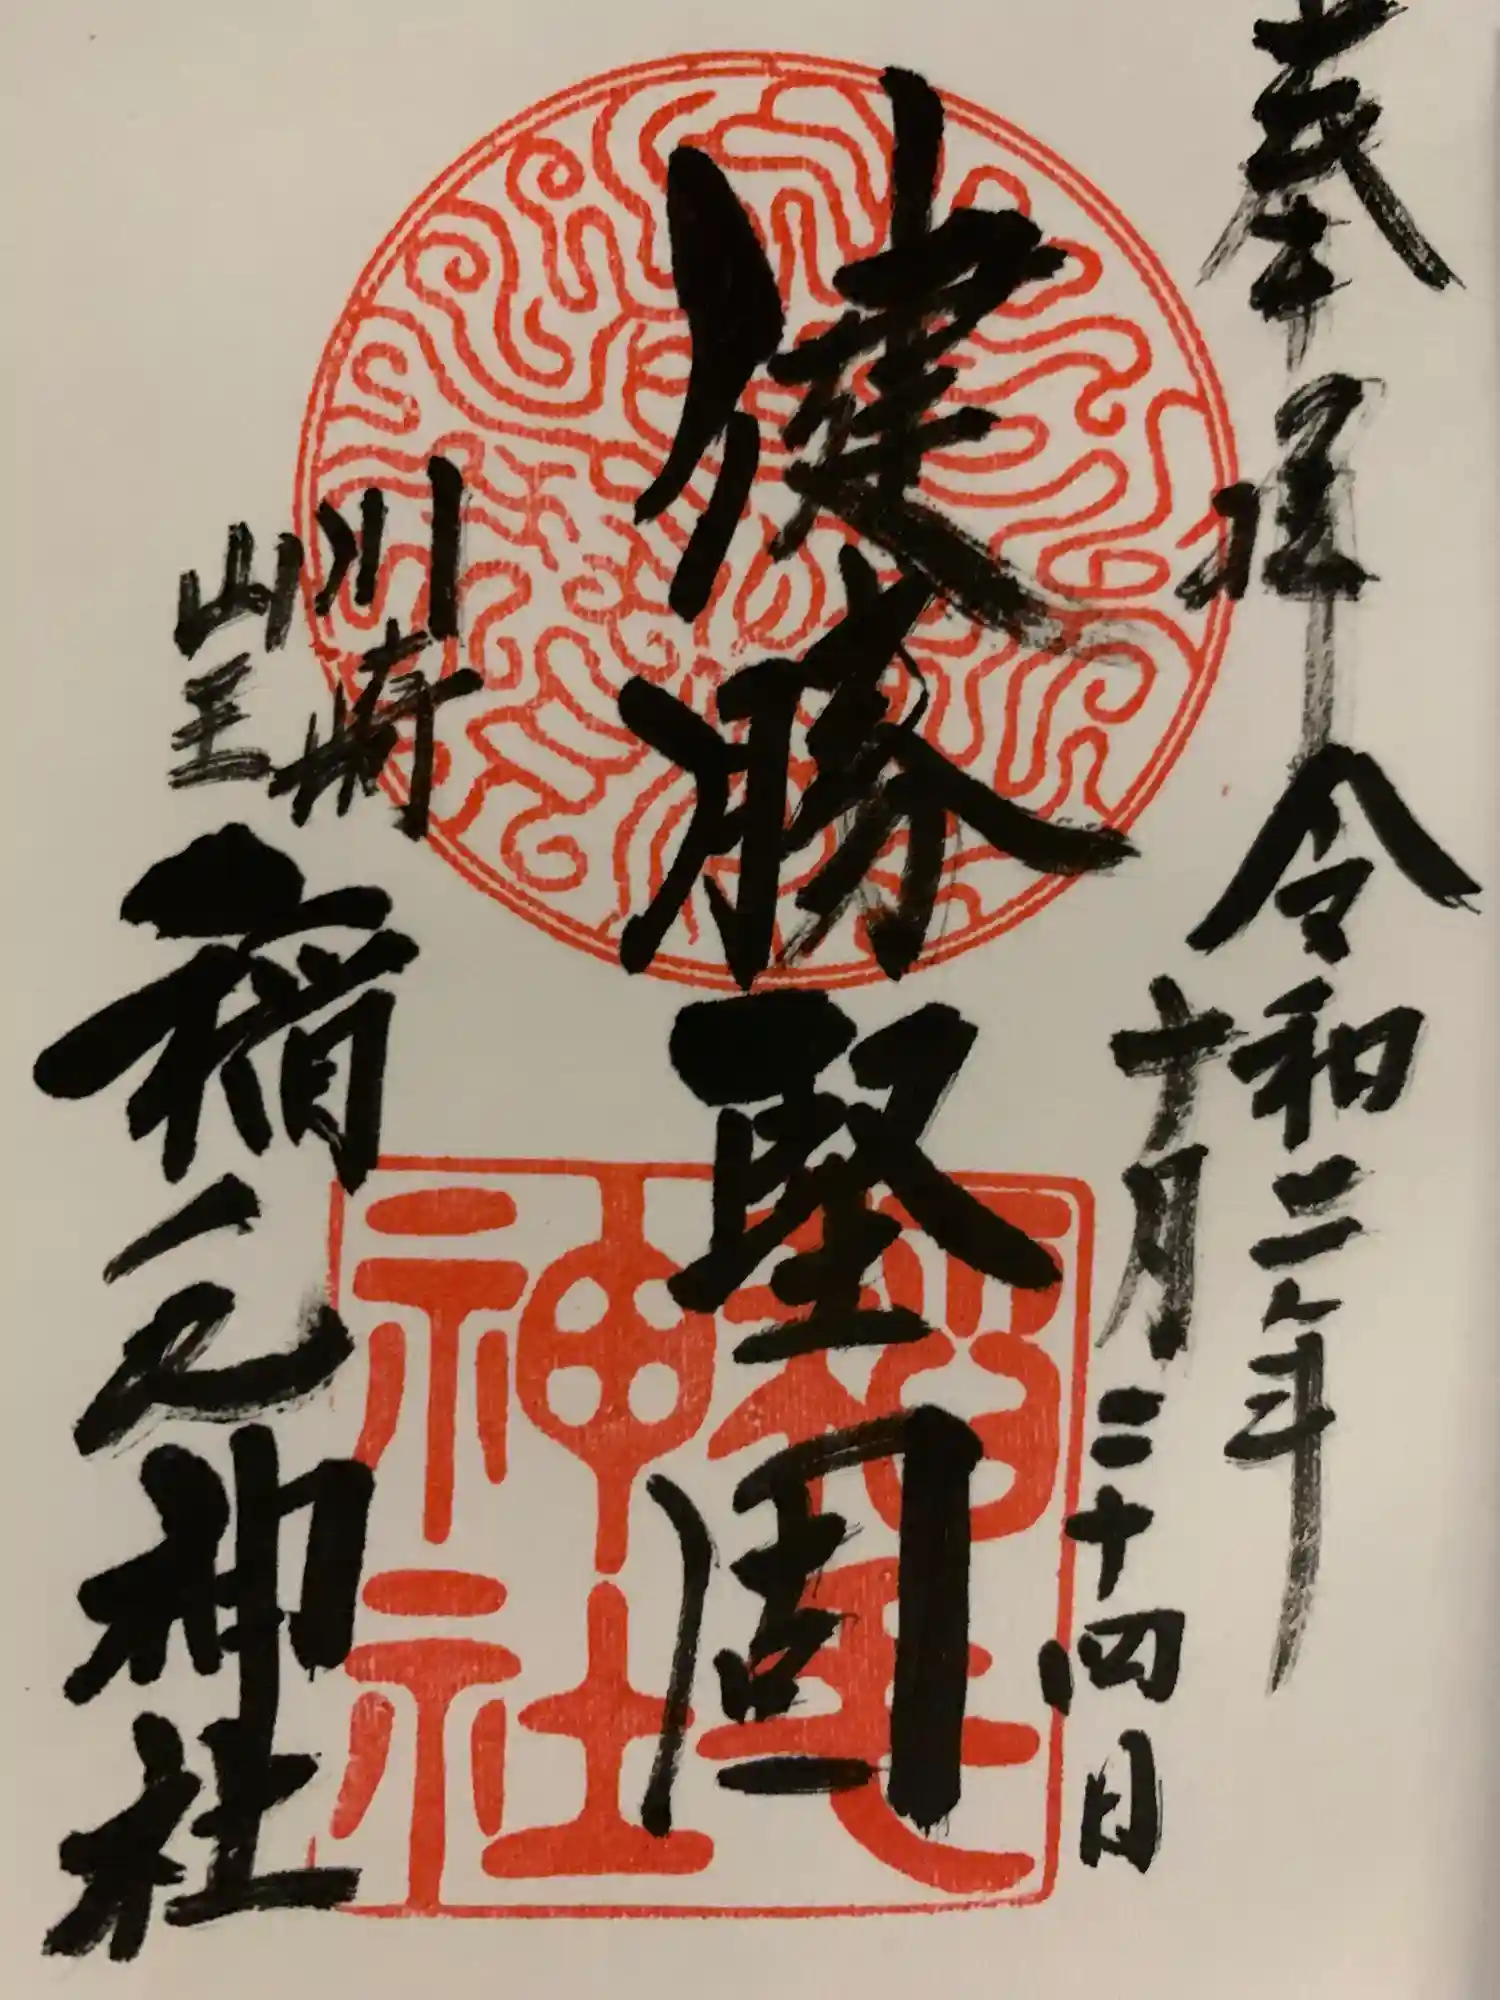 奉拝 令和二年
十月二十四日
健勝堅固
川崎
山王
稲毛神社
稲毛
神社